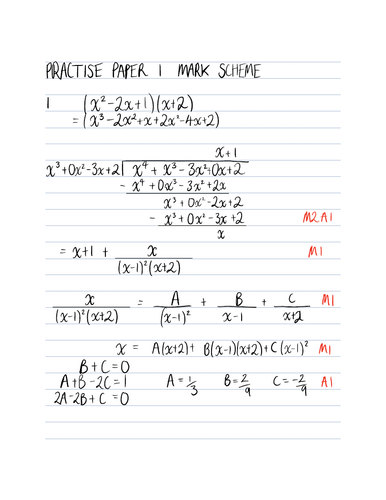 PRACTISE PAPER 1 MARK SCHEME
1 (x²-2x+1)(x+2)
= (x³-2x²+x+2x²-4x+2)
x+1
x³+0x²-3x+2 x⁴ + x³ - 3x²+0x+2
- x⁴ +0x³-3x²+2x
x³+0x²-2x+2
- x³+0x²-3x+2 M2 A1
x
= x+1 + x/((x-1)²(x+2)) M1
x/((x-1)²(x+2)) = A/(x-1)² + B/(x-1) + C/(x+2) M1
x = A(x+2)+ B(x-1)(x+2)+C(x-1)² M1
B+C=0
A+B-2C=1 A=1/3 B=2/9 C=-2/9 A1
2A-2B+C=0